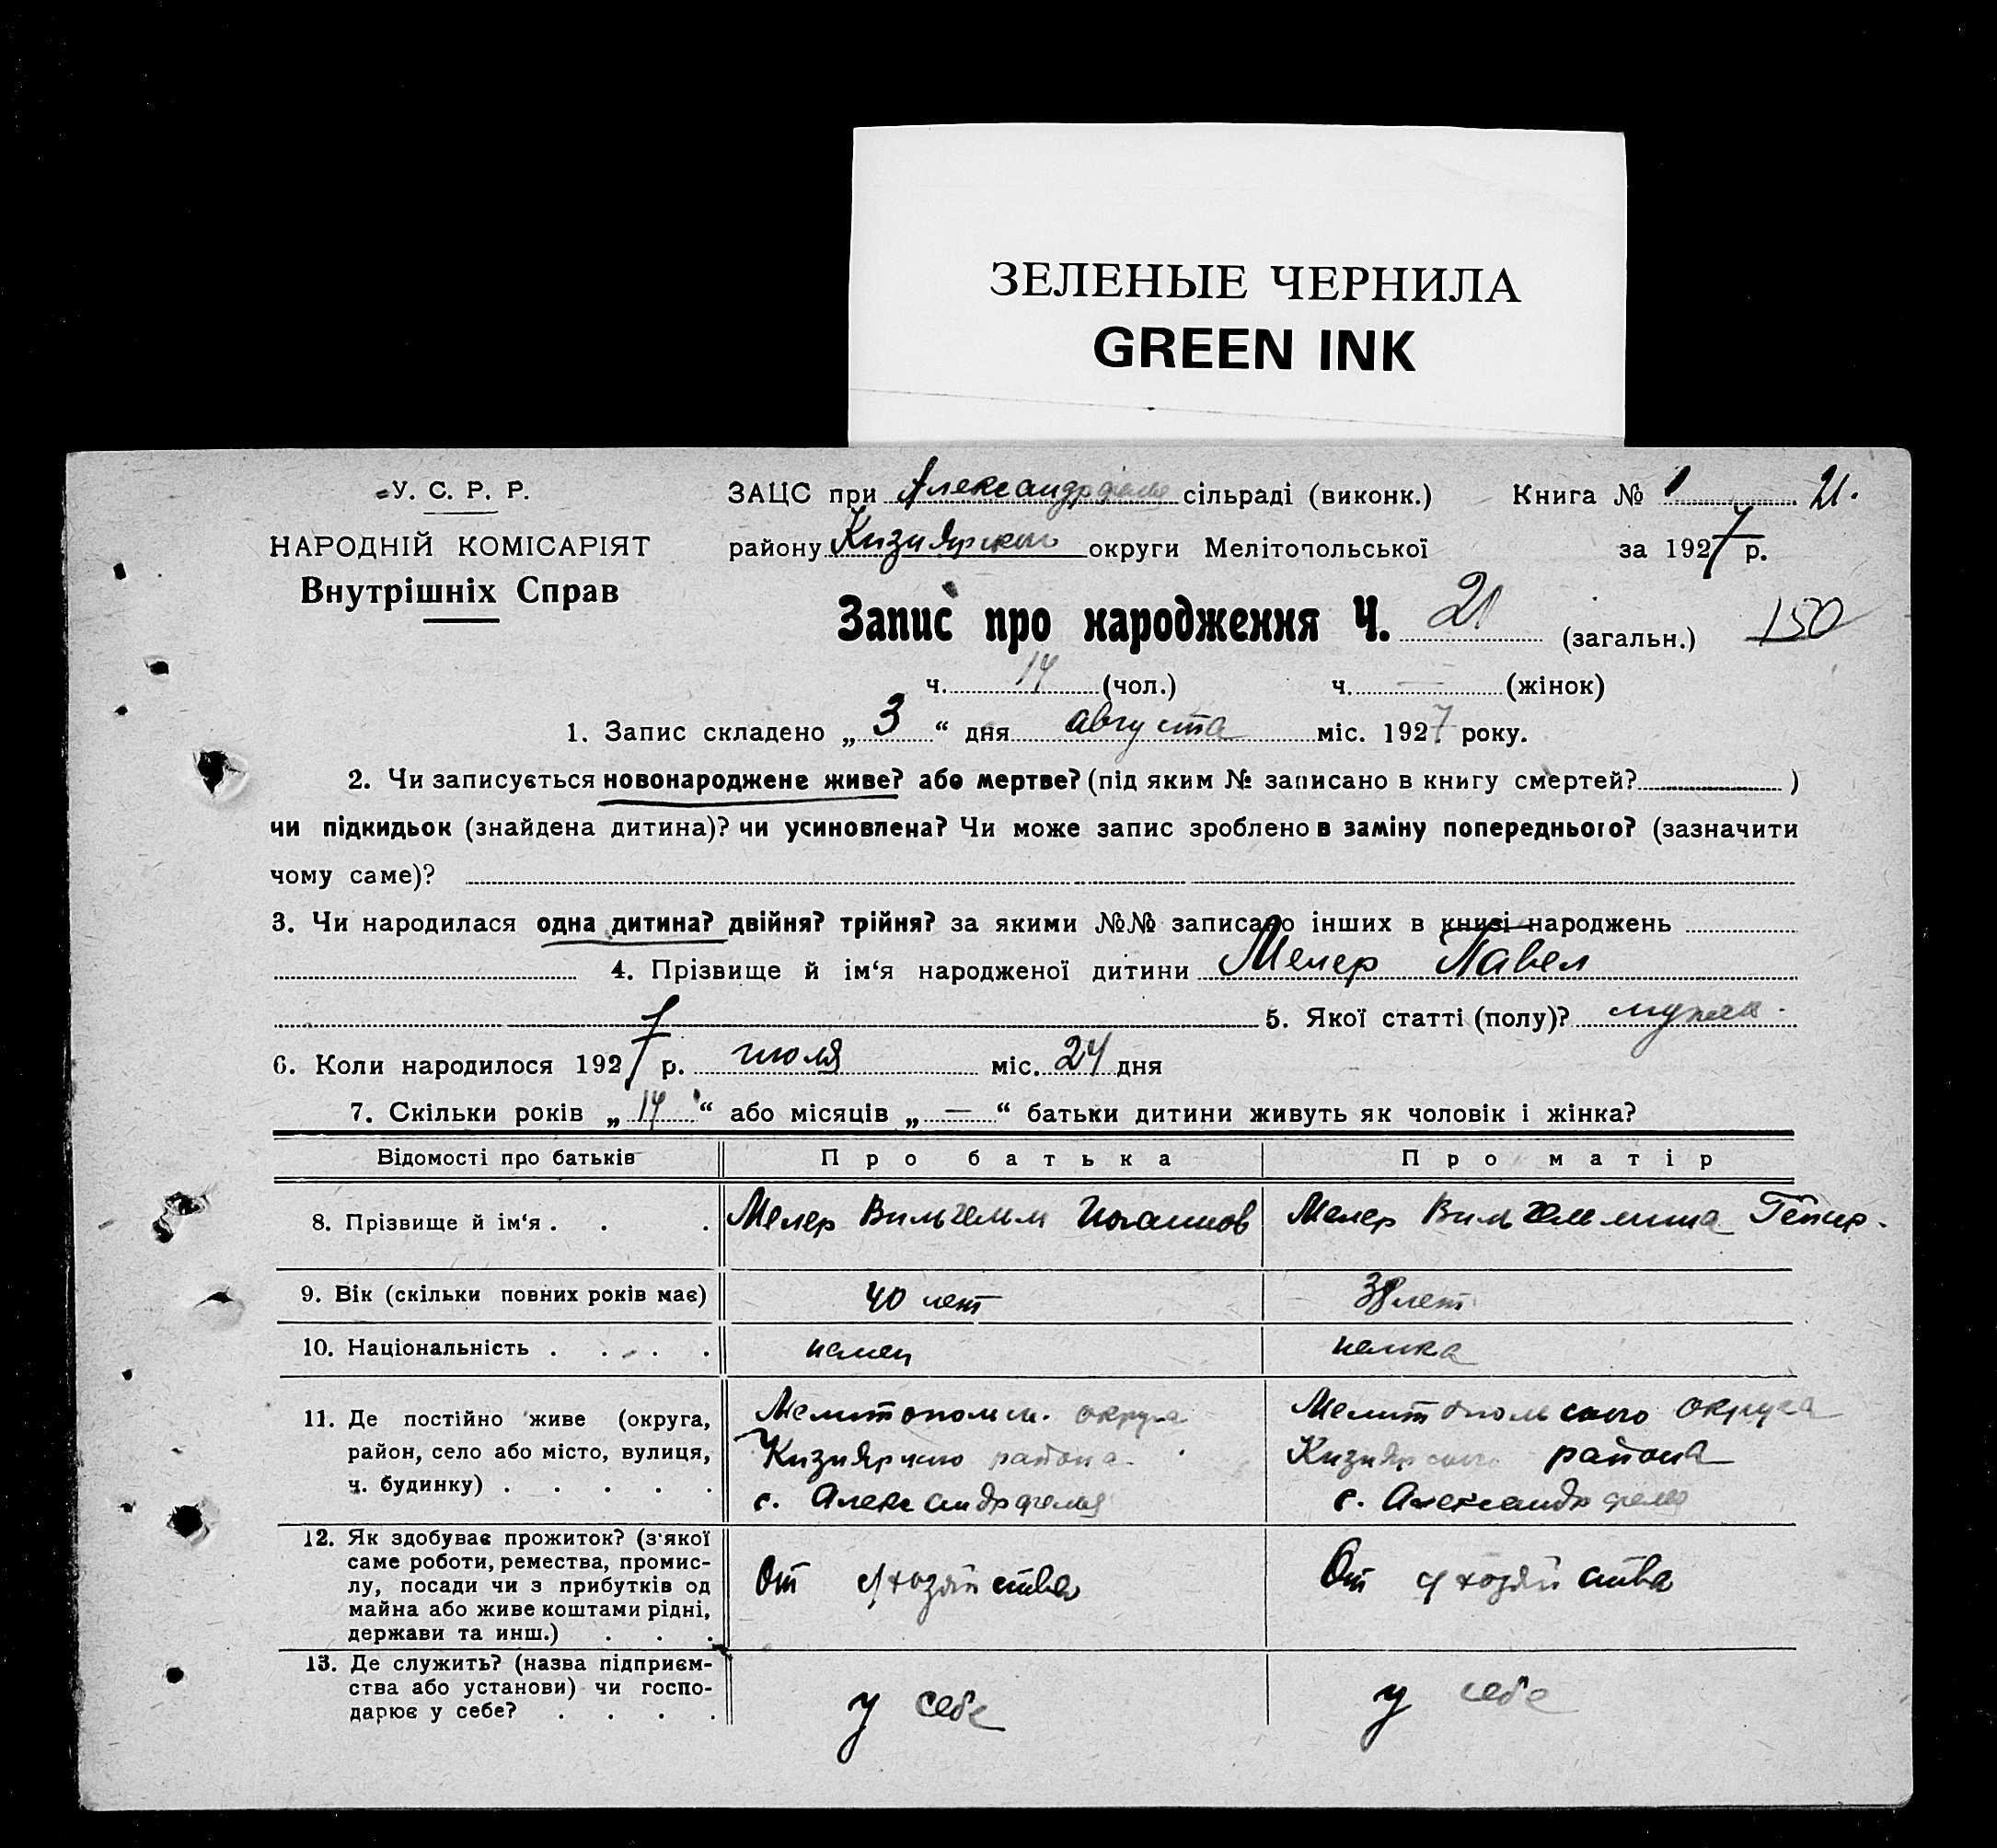 ЗЕЛЕНЫЕ ЧЕРНИЛА
GREEN INK
У. С. Р. Р.
НАРОДНІЙ КОМІСАРІЯТ
Внутрішніх Справ
ЗАЦС при Александрфельд сільраді (виконк.) Книга № 1 21.
району Кизиярского округи Мелітопольської за 1927 р.
Запис про народження Ч. 21 (загальн.) 150
ч. 14 (чол.) ч. — (жінок)
1. Запис складено „ 3 “ дня августа міс. 1927 року.
2. Чи записується новонароджене живе? або мертве? (під яким № записано в книгу смертей? )
чи підкидьок (знайдена дитина)? чи усиновлена? Чи може запис зроблено в заміну попереднього? (зазначити
чому саме)?
3. Чи народилася одна дитина? двійня? трійня? за якими №№ записано інших в книзі народжень
4. Прізвище й ім‘я народженої дитини Мелер Павел
5. Якої статті (полу)? мужск.
6. Коли народилося 1927 р. июля міс. 24 дня
7. Скільки років „ 14 “ або місяців „ — “ батьки дитини живуть як чоловік і жінка?
Відомості про батьків Про батька Про матір
8. Прізвище й ім‘я . . . Мелер Вильгельм Иоганнов Мелер Вильгельмина Генир.
9. Вік (скільки повних років має) 40 лет 38 лет
10. Національність . . . . немец немка
11. Де постійно живе (округа,
район, село або місто, вулиця,
ч. будинку) . . . . .
Мелитопольск. округа
Кизиярского района
с. Александрфельд
Мелитопольского округа
Кизиярского района
с. Александрфельд
12. Як здобуває прожиток? (з‘якої
саме роботи, ремества, промис-
лу, посади чи з прибутків од
майна або живе коштами рідні,
держави та инш.) . . .
От с/хозяйства
От с/хозяйства
13. Де служить? (назва підприєм-
ства або установи) чи госпо-
дарює у себе? . . . .
у себе
у себе